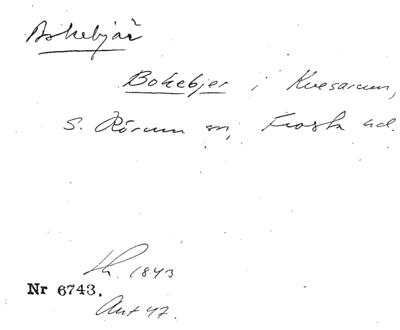 Bokebjär
Bokebjer i Kvesarum,
S. Rörum sn, Frosta hd.
Lh. 1843
Nr 6743.
Avt 47.